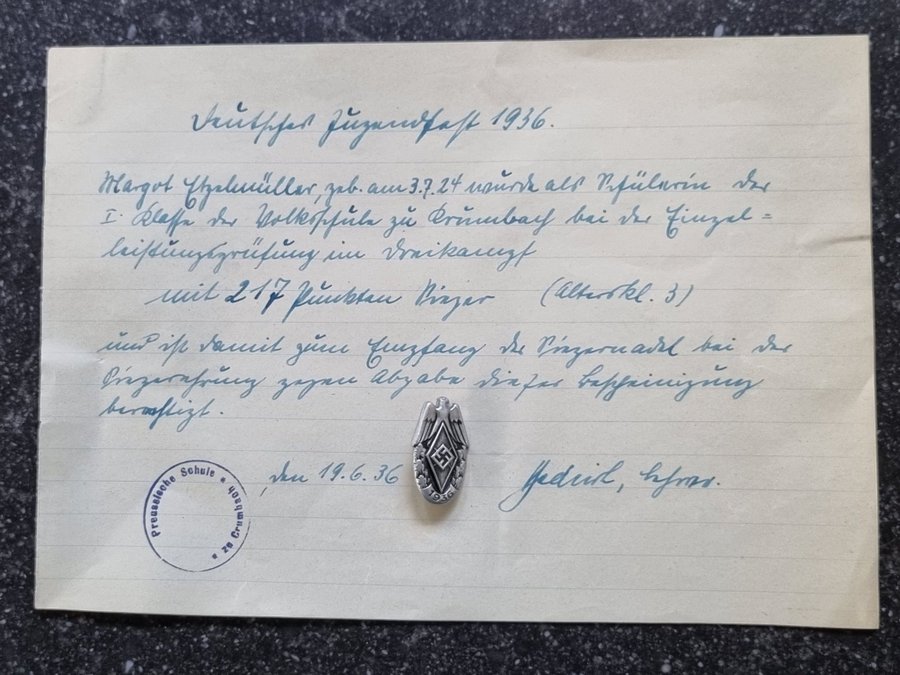 Deutsches Jugendfest 1936.
Margot Etzelmüller, geb. am 3.7.24 wurde als Schülerin der
I. Klasse der Volksschule zu Krumbach bei der Einzel=
leistungsprüfung im Dreikampf
mit 217 Punkten Sieger (Alterskl. 3)
und ist damit zum Empfang der Siegernadel bei der
Siegerehrung gegen Abgabe dieser Bescheinigung
berechtigt.
den 19.6.36
Lehrer.
Preussische Schule * zu Crumbach *
1936